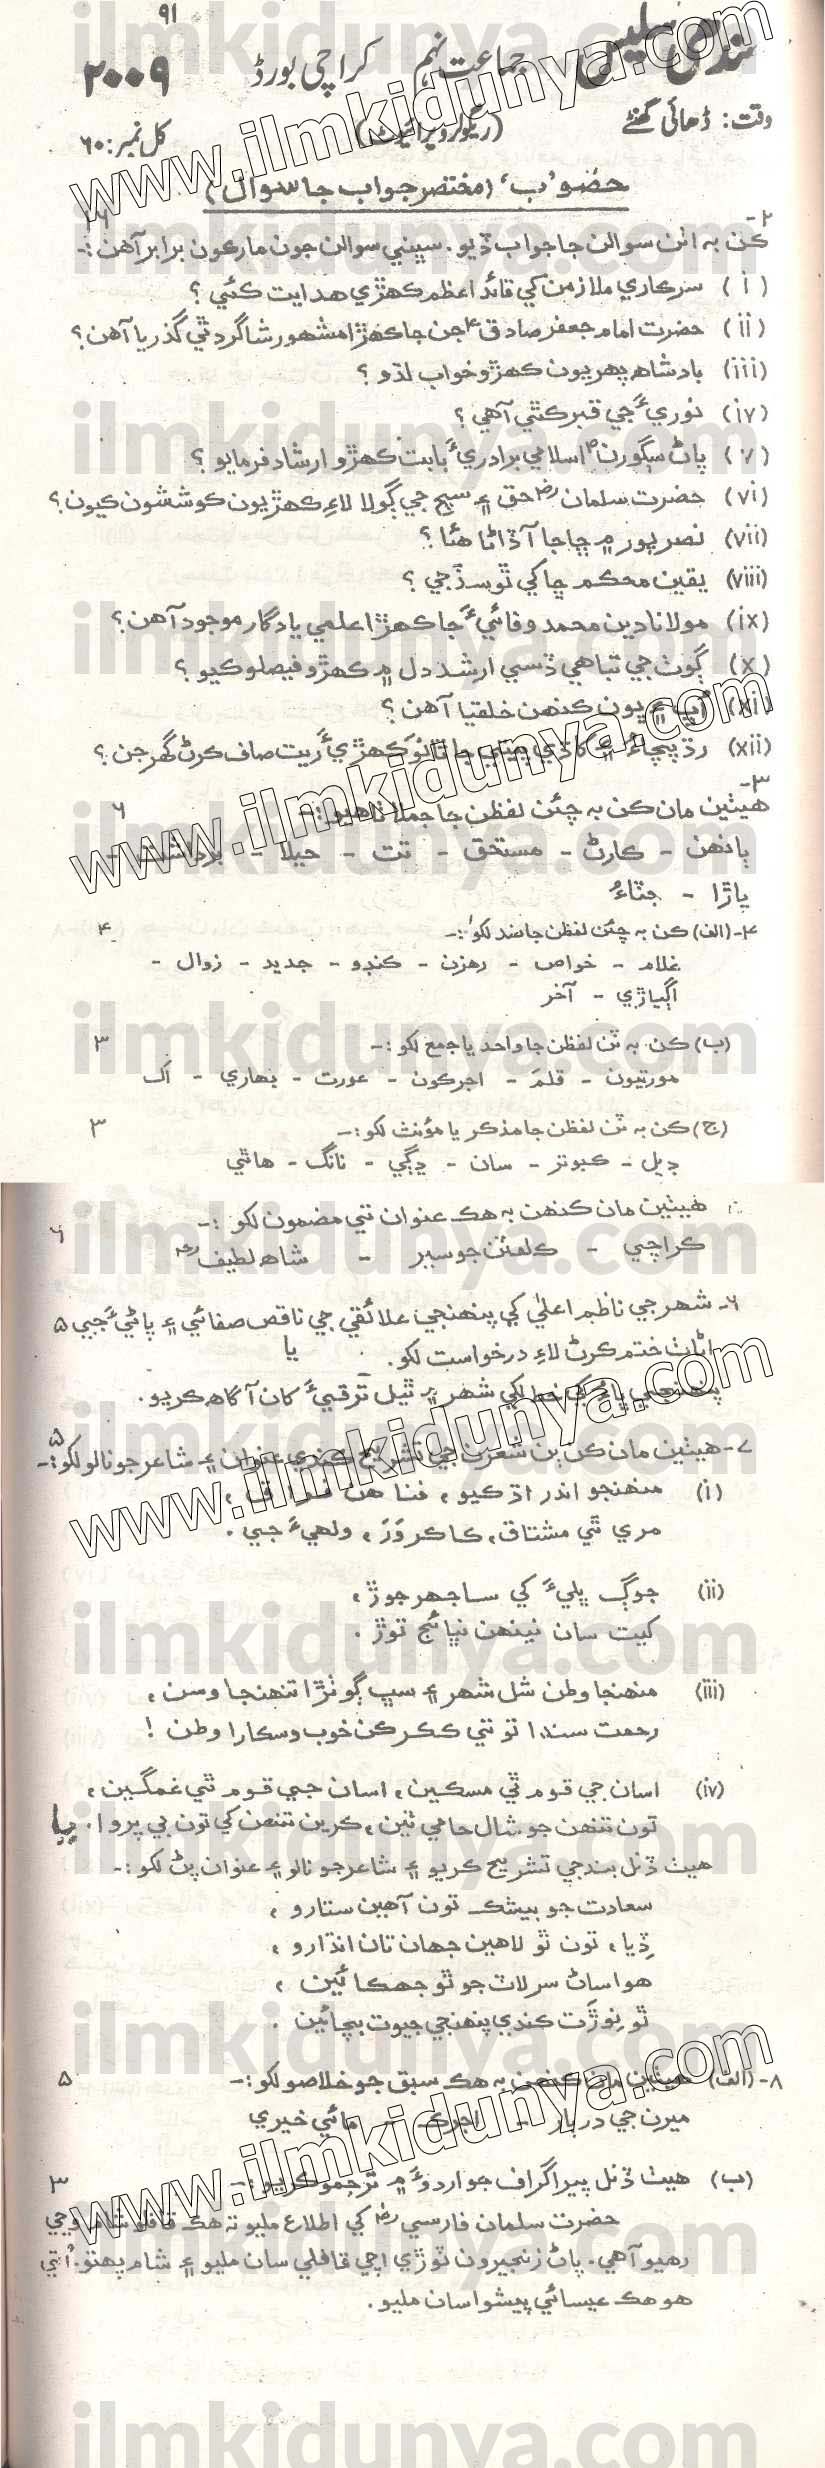 ۹۱
سندھی سلیس جماعت نہم کراچی بورڈ ۲۰۰۹
وقت: ڈھائی گھنٹے (ریگولر و پرائیویٹ) کل نمبر: ۶۰
حصو 'ب' (مختصر جواب جا سوال)
۲- ڪن به اٺن سوالن جا جواب ڏيو. سڀني سوالن جون مارڪون برابر آهن:-
(i) سرڪاري ملازمن کي قائد اعظم ڪهڙي هدايت ڪئي ؟
(ii) حضرت امام جعفر صادق ؑ جن جا ڪهڙا مشهور شاگرد ٿي گذريا آهن؟
(iii) بادشاهه پهريون ڪهڙو خواب لڌو ؟
(iv) نوريءَ جي قبر ڪٿي آهي ؟
(v) پاڻ سڳورن ؐ اسلامي برادريءَ بابت ڪهڙو ارشاد فرمايو ؟
(vi) حضرت سلمان رضه حق ۽ سچ جي ڳولا لاءِ ڪهڙيون ڪوششون ڪيون؟
(vii) نصرپور ۾ ڇا جا آڏاڻا هئا ؟
(viii) يقين محڪم ڇا کي ٿو سڏجي ؟
(ix) مولانا دين محمد وفائيءَ جا ڪهڙا علمي يادگار موجود آهن؟
(x) ڳوٺ جي تباهي ڏسي ارشد دل ۾ ڪهڙو فيصلو ڪيو ؟
(xi) اُڀ ۽ ڀون ڪنهن خلقيا آهن ؟
(xii) رڌ پچاءُ ۽ کاڌي پيتي جا ٿانو ڪهڙيءَ ريت صاف ڪرڻ گهرجن ؟
۳- هيٺين مان ڪن به ڇئن لفظن جا جملا ٺاهيو:- ۶
ٻانهن - ڪارڻ - مستحق - تت - حيلا - برداشت -
پاڙا - جٿاءُ
۴-(الف) ڪن به چئن لفظن جا ضد لکو:- ۴
غلام - خواص - رهزن - ڪنڊو - جديد - زوال -
اڳياڙي - آخر
(ب) ڪن به ٽن لفظن جا واحد يا جمع لکو:- ۳
مورتيون - قلمَ - اجرڪون - عورت - بهاري - اک
(ج) ڪن به ٽن لفظن جا مذڪر يا مؤنث لکو:- ۳
ڊيل - ڪبوتر - سان - ڍڳي - نانگ - هاٿي
هيٺين مان ڪنهن به هڪ عنوان تي مضمون لکو :- ۶
ڪراچي - ڪلفٽن جو سير - شاهه لطيف رحه
۶- شهر جي ناظم اعليٰ کي پنهنجي علائقي جي ناقص صفائي ۽ پاڻيءَ جي ۵
اڻاٺ ختم ڪرڻ لاءِ درخواست لکو. يا
پنهنجي ڀاءُ کي خط لکي شهر ۾ ٿيل ترقيءَ کان آگاهه ڪريو.
۷- هيٺين مان ڪن ٻن شعرن جي تشريح ڪندي عنوان ۽ شاعر جو نالو لکو:- ۵
(i) منهنجو اندر اڌ ڪيو ، فنا هن فراق ،
مري ٿي مشتاق، ڪا ڪر وَرَ ، ولهيءَ جي .
(ii) جوڳ ڀليءَ کي ساجهر جوڙ ،
کيت سان نينهن نڀائج توڙ .
(iii) منهنجا وطن شل شهر ۽ سڀ ڳوٺڙا تنهنجا وسن ،
رحمت سندا تو تي ڪڪر ڪن خوب وسڪارا وطن !
(iv) اسان جي قوم ٿي مسڪين ، اسان جي قوم ٿي غمگين ،
تون تنهن جو شال حامي ٿين ، ڪرين تنهن کي تون بي پروا. يا
هيٺ ڏنل بند جي تشريح ڪريو ۽ شاعر جو نالو ۽ عنوان پڻ لکو :-
سعادت جو بيشڪ تون آهين ستارو ،
ڏيا ، تون ٿو لاهين جهان تان انڌارو ،
هوا ساڻ سر لاٽ جو ٿو جهڪائين ،
ٿو نوڙت ڪندي پنهنجي جيوت بچائين .
۸-(الف) هيٺين مان ڪنهن به هڪ سبق جو خلاصو لکو:- ۵
ميرن جي دربار - اجرڪ - مائي خيري
(ب) هيٺ ڏنل پيراگراف جو اردوءَ ۾ ترجمو ڪريو:- ۳
حضرت سلمان فارسي رضه کي اطلاع مليو ته هڪ قافلو شام وڃي
رهيو آهي. پاڻ زنجيرون ٽوڙي اچي قافلي سان مليو ۽ شام پهتو. اُتي
هو هڪ عيسائي پيشوا سان مليو.
www.ilmkidunya.com
ilmkidunya.com